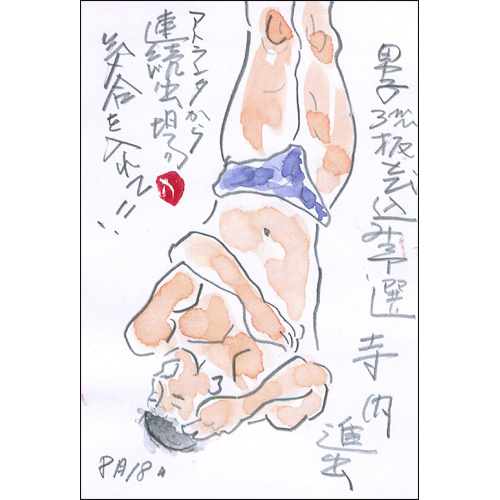 男子3m板飛込み予選 寺内進出
アトランタから
連続出場の
気合を入れて!!
8月18日